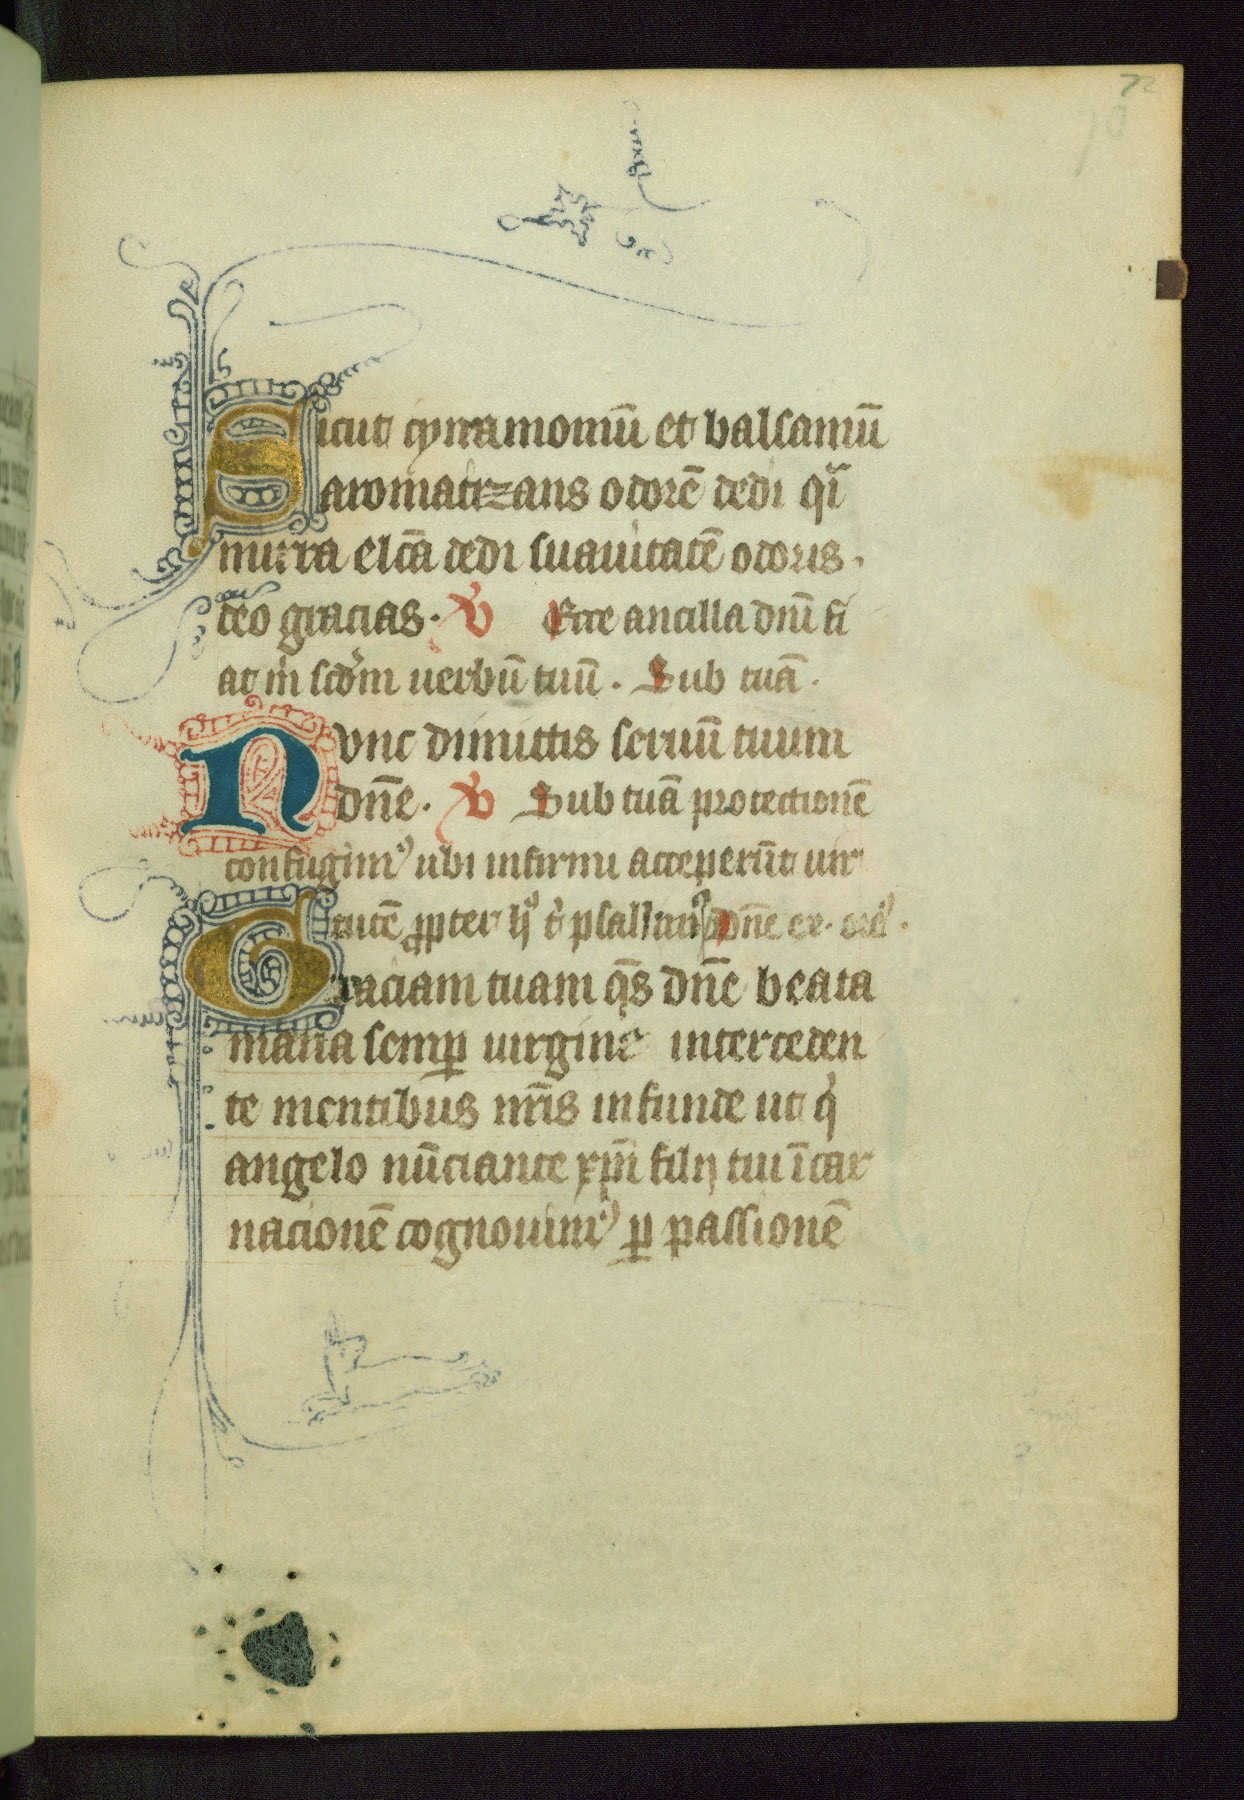 72
70
Sicut cynamomū et balsamū
aromatizans odorē dedi q̄i
mirra elc̄a dedi suavitatē odoris.
deo gracias. V Ecce ancilla dn̄i fi
at ṁ scd̄m uerbū tuū. Sub tuā.
Nunc dimittis seruū tuum
dn̄e. V Sub tuā protectionē
confugim⁹ ubi infirmi acceperūt uir
tutē ꝓpter h⁹ t̄ psallim⁹ dn̄e ex. orē⁹.
Graciam tuam q̄s dn̄e beata
maria semꝑ uirgine interceden
te mentibus nr̄is infunde ut q̇
angelo nūciante xp̄i filij tui īcar
nacionē cognouim⁹ ꝑ passionē